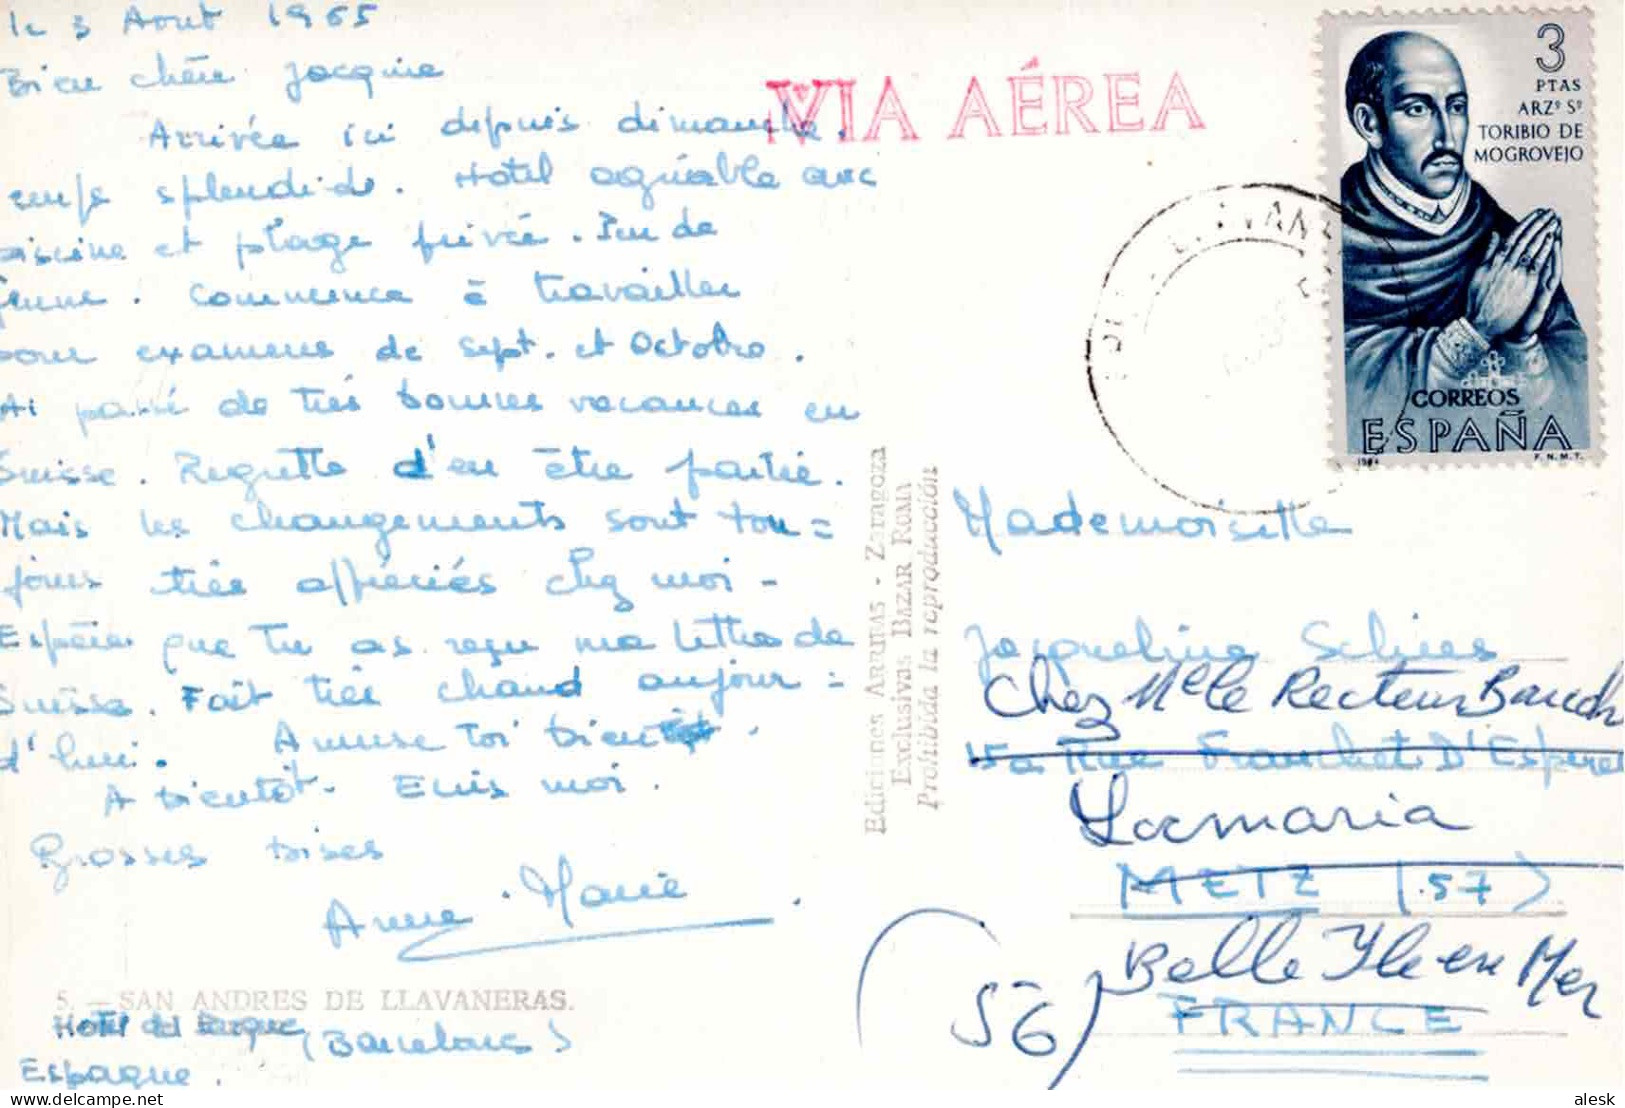 le 3 Aout 1965
Bien chère Jacquie
Arrivée ici depuis dimanche.
temps splendide. Hotel agréable avec
piscine et plage privée. Peu de
jeune. Commence à travailler
pour examens de sept. et Octobre.
Ai passé de très bonnes vacances en
Suisse. Regrette d'en être partie.
Mais les changements sont tou=
jours très appréciés chez moi-
Espère que tu as reçu ma lettre de
Suisse. Fait très chaud aujour=
d'hui. Amuse toi bien
A bientôt. Ecris moi.
Grosses bises
Anne-Marie.
5. — SAN ANDRES DE LLAVANERAS.
Hotel del Parque (Barcelone)
Espagne.
Ediciones ARRIBAS - Zaragoza
Exclusivas BAZAR ROMA
Prohibida la reproducción
VIA AÉREA
3
PTAS
ARZº Sº
TORIBIO DE
MOGROVEJO
CORREOS
ESPAÑA
F.N.M.T.
Mademoiselle
Jacqueline
Chez Mr le Recteur
15a Rue Franchet D'Esperey
Locmaria
METZ (57)
Belle Ile en Mer
(56)
FRANCE
delcampe.net
alesk